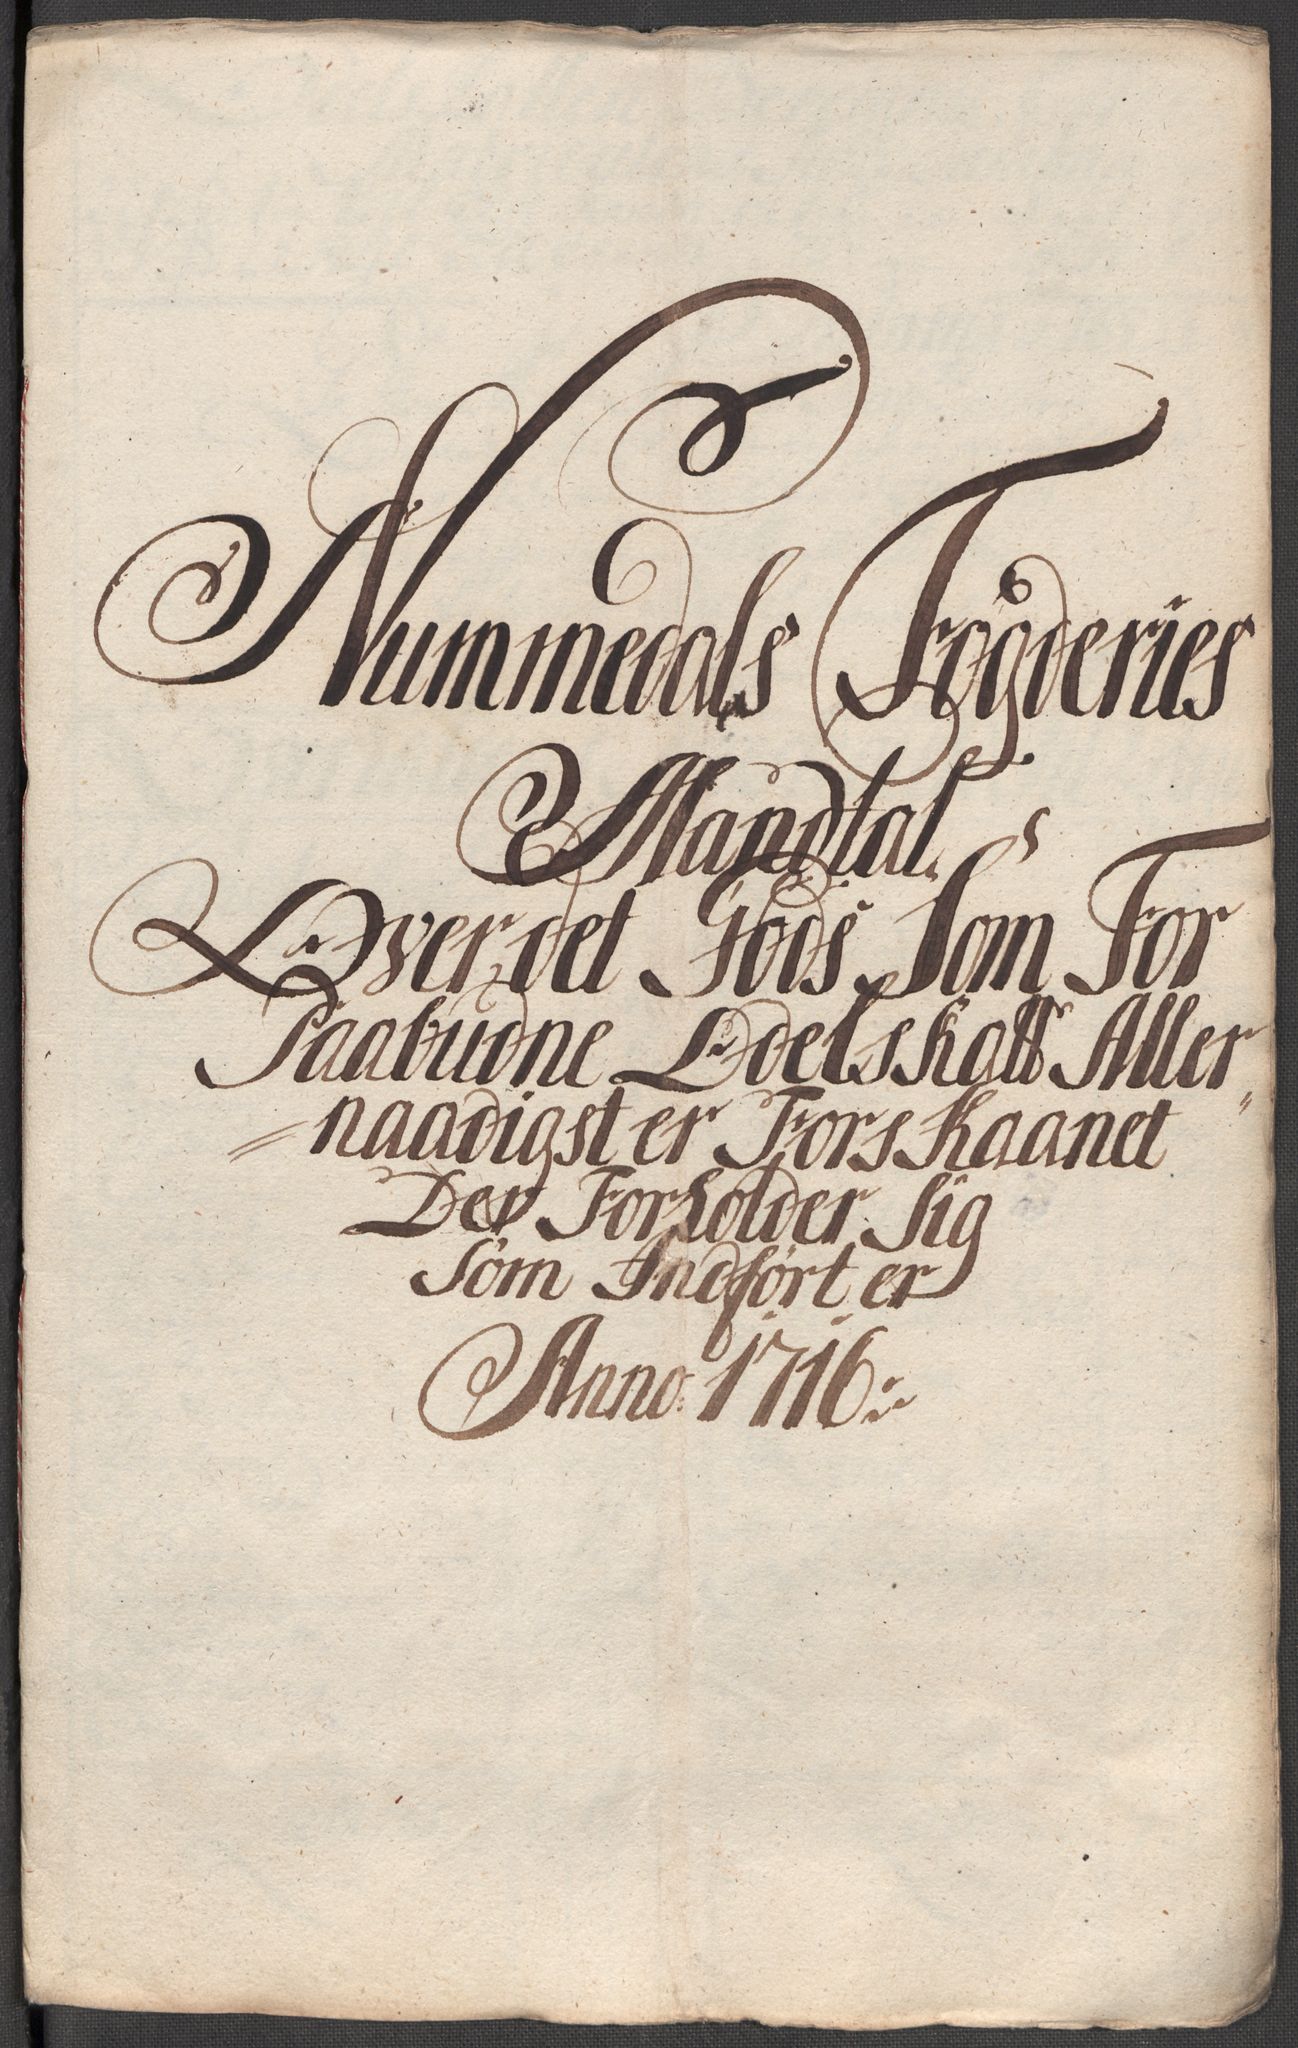 Nummedals Fogderies
Mandtal
Over det Gods Som For
Paabudne Odels Skatt Aller
naadigst er Forskaanet
Der Forholder Sig
som Indført er
Anno 1716